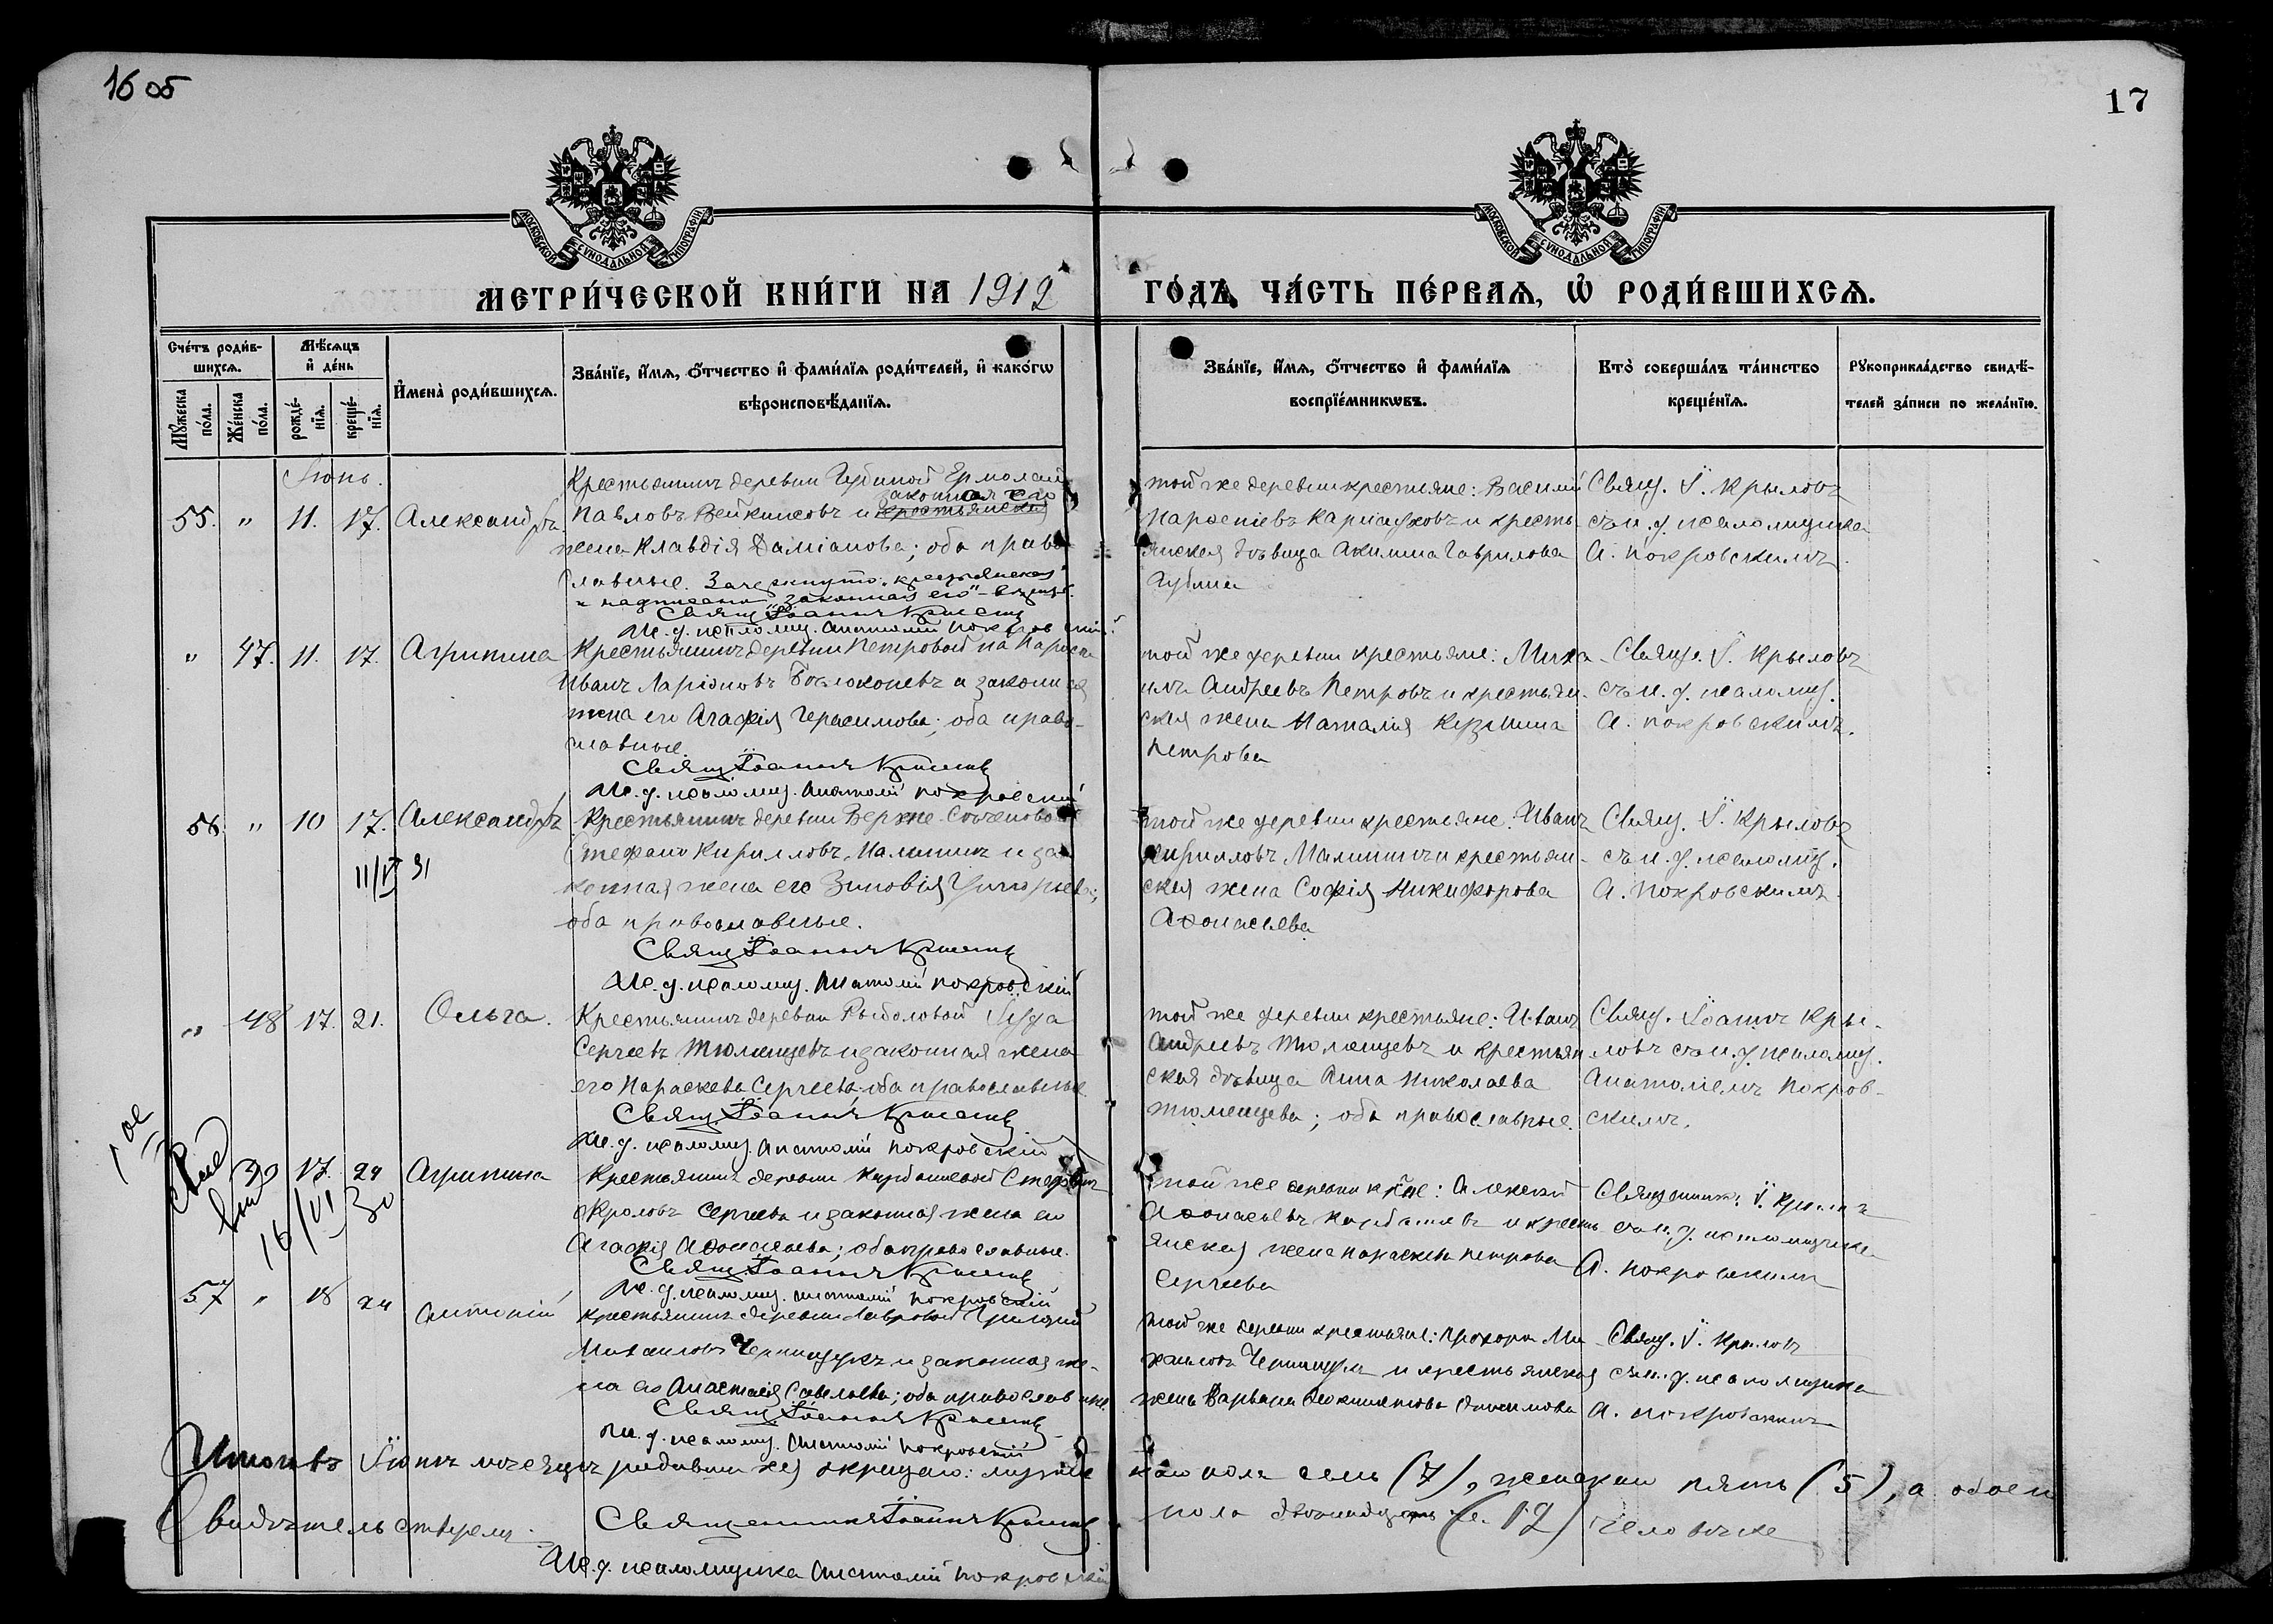 16 об
17
МОСКОВСКОЙ СУНОДАЛЬНОЙ ТИПОГРАФІИ
МОСКОВСКОЙ СУНОДАЛЬНОЙ ТИПОГРАФІИ
МЕТРИ́ЧЕСКОЙ КНИ́ГИ НА 1912
ГО́ДЪ, ЧА́СТЬ ПЕ́РВАѦ, Ѡ҆ РОДИ́ВШИХСѦ.
Сче́тъ роди́в-
шихсѧ.
Мѣ́сѧцъ
и҆ де́нь
Мꙋ́жеска по́ла.
Же́нска по́ла.
рожде́-
нїѧ.
креще́-
нїѧ.
И҆мена̀ роди́вшихсѧ.
Зва́нїе, и҆́мѧ, ѻ҆́тчество и҆ фами́лїѧ роди́телей, и҆ како́гѡ
вѣроисповѣ́данїѧ.
Зва́нїе, и҆́мѧ, ѻ҆́тчество и҆ фами́лїѧ
воспрїе́мникѡвъ.
Кто̀ соверша́лъ та́инство
креще́нїѧ.
Рꙋкоприкла́дство свидѣ́-
телей за́писи по жела́нїю.
Іюнь.
55. " 11. 17. Александръ
Крестьянинъ деревни Губиной Ермолай
законная его
Павловъ и крестьянская
жена Клавдія Даміанова; оба право-
славные. Зачеркнуто „крестьянская"
и надписано „законная его"
Свящ. Іоаннъ Крылов
И. д. псаломщ. Анатолій Покровскій
той же деревни крестьяне: Василій
Парѳеніевъ и кресть-
янская дѣвица Акилина Гаврилова
Губина
Свящ. І. Крыловъ
съ и. д. псаломщика
А. Покровскимъ.
" 47. 11. 17. Агрипина
Крестьянинъ деревни Петровой
Иванъ Ларіоновъ Бѣлоконевъ и законная
жена его Агафія Герасимова; оба право-
славные.
Свящ. Іоаннъ Крылов
И. д. псаломщ. Анатолій Покровскій
той же деревни крестьяне: Миха-
илъ Андреевъ Петровъ и крестьян-
ская жена Наталія Кузмина
Петрова
Свящ. І. Крыловъ
съ и. д. псаломщ.
А. Покровскимъ.
56. " 10 17. Александръ
11/IV 31
Крестьянинъ деревни Верхне-
Стефанъ Кирилловъ Малининъ и за-
конная жена его Зиновія Григорьева;
оба православные.
Свящ. Іоаннъ Крылов
И. д. псаломщ. Анатолій Покровскій
той же деревни крестьяне: Иванъ
Кирилловъ Малининъ и крестьян-
ская жена Софія Никифорова
Аѳонасьева
Свящ. І. Крыловъ
съ и. д. псаломщ.
А. Покровскимъ.
" 48 17. 21. Ольга.
Крестьянинъ деревни Рыболовой
Сергѣевъ Тюменцевъ и законная жена
его Параскева Сергѣева; оба православные.
Свящ. Іоаннъ Крылов
И. д. псаломщ. Анатолій Покровскій
той же деревни крестьяне: Иванъ
Андреевъ Тюменцевъ и крестьян-
ская дѣвица Анна Николаева
Тюменцева; оба православные.
Свящ. Іоаннъ Кры-
ловъ съ и. д. псаломщ.
Анатоліемъ Покров-
скимъ.
17. 24 Агрипина
16/VI 30
Крестьянинъ деревни
Сергеевъ и законная жена его
Агафія Аѳонасьева; оба православные.
Свящ. Іоаннъ Крылов
И. д. псаломщ. Анатолій Покровскій
той же деревни кр-не: Алексѣй
Аѳонасьевъ и кресть-
янская жена Параскева Петрова
Сергѣева
Священникъ І. Крыловъ
съ и. д. псаломщика
А. Покровскимъ
57 " 18 24 Антоній
Крестьянинъ деревни Лавровой Григорій
Михаиловъ и законная же-
на его Анастасія Савельева; оба православные.
Свящ. Іоаннъ Крылов
И. д. псаломщ. Анатолій Покровскій
той же деревни крестьяне: Прохоръ Ми-
хаиловъ и крестьянская
жена Варвара
Свящ. І. Крыловъ
съ и. д. псаломщика
А. Покровскимъ
Итого въ Іюнѣ мѣсяцѣ родившихся окрещено: мужес-
каго пола семь (7), женскаго пять (5), а обоего
пола двѣнадцать (12) человѣкъ
Свидѣтельствуемъ:
Священникъ Іоаннъ Крылов
И. д. псаломщика Анатолій Покровскій